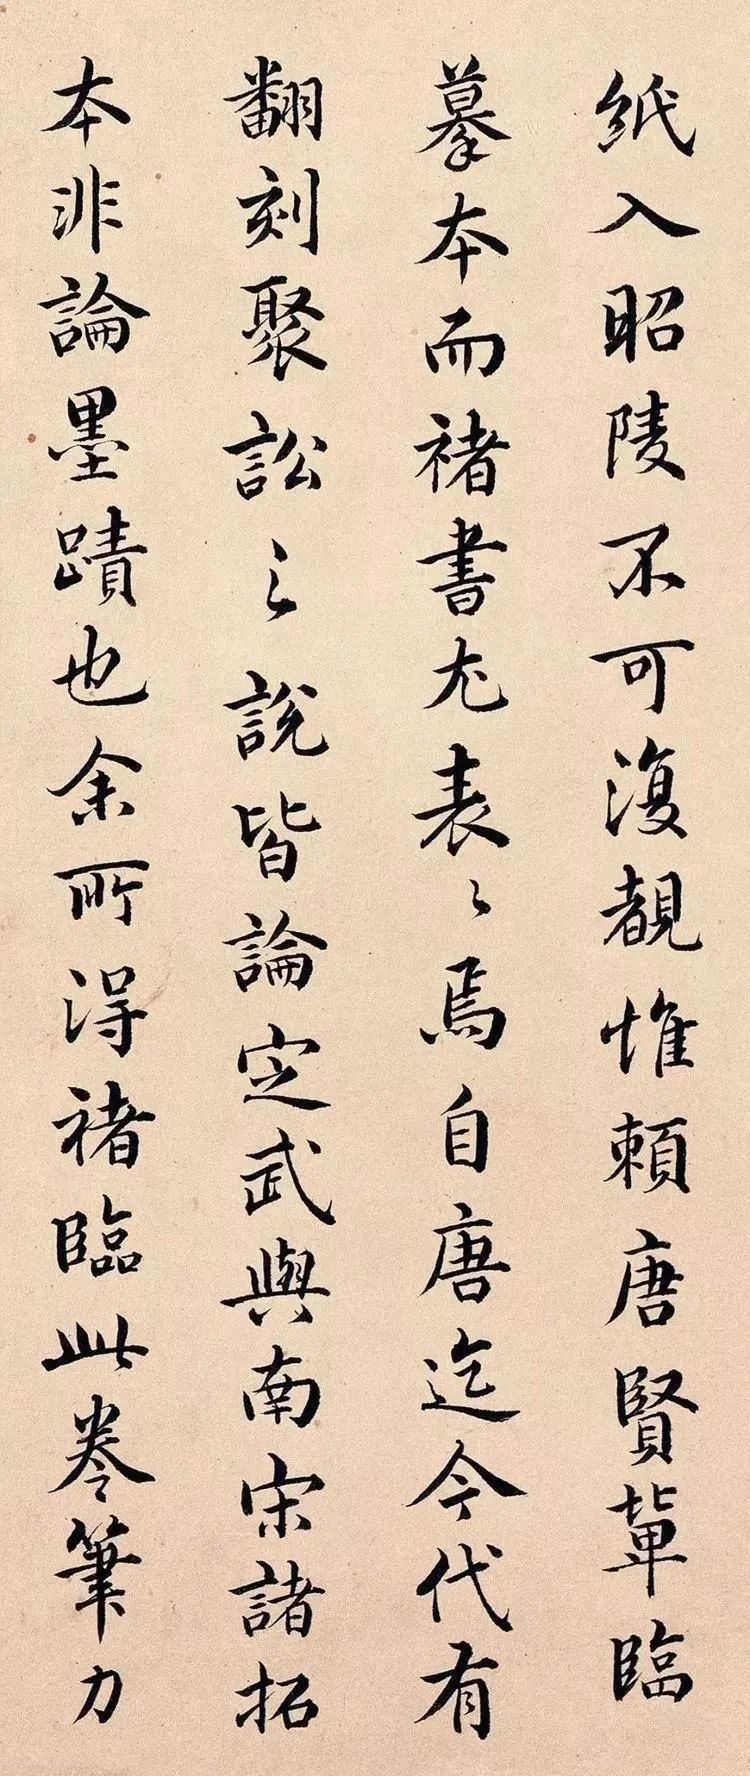 紙入昭陵不可復覩惟賴唐賢輩臨
摹本而褚書尤表〻焉自唐迄今代有
翻刻聚訟之說皆論定武與南宋諸拓
本非論墨蹟也余所得褚臨此卷筆力